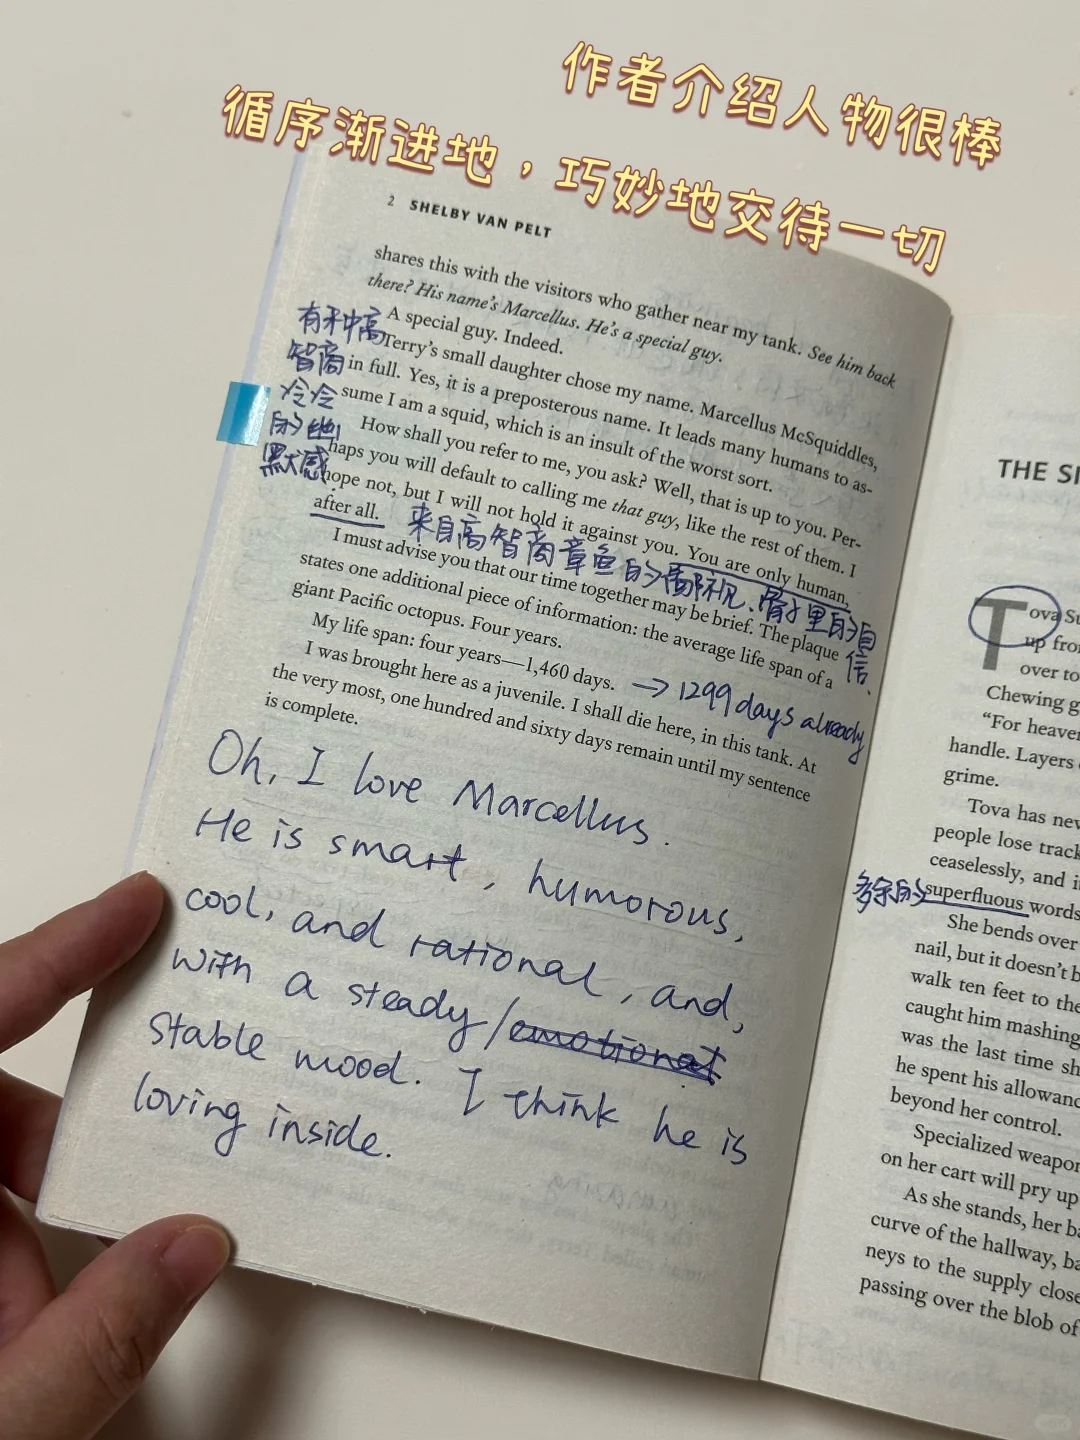 作者介绍人物很棒
循序渐进地，巧妙地交待一切
2 SHELBY VAN PELT
shares this with the visitors who gather near my tank. See him back
there? His name's Marcellus. He's a special guy.
A special guy. Indeed.
Terry's small daughter chose my name. Marcellus McSquiddles,
in full. Yes, it is a preposterous name. It leads many humans to as-
sume I am a squid, which is an insult of the worst sort.
How shall you refer to me, you ask? Well, that is up to you. Per-
haps you will default to calling me that guy, like the rest of them. I
hope not, but I will not hold it against you. You are only human,
after all.
I must advise you that our time together may be brief. The plaque
states one additional piece of information: the average life span of a
giant Pacific octopus. Four years.
My life span: four years—1,460 days.
I was brought here as a juvenile. I shall die here, in this tank. At
the very most, one hundred and sixty days remain until my sentence
is complete.
有种高
智商
冷冷
的幽
默感
来自高智商章鱼的鄙视、骨子里的自
信.
→ 1299 days already
Oh, I love Marcellus.
He is smart, humorous,
cool, and rational, and,
with a steady/
stable mood. I think he is
loving inside.
THE SI
Tova Su
up from
over to
Chewing g
"For heaven
handle. Layers
grime.
Tova has nev
people lose track
ceaselessly, and i
多余的
superfluous words
She bends over
nail, but it doesn't b
walk ten feet to the
caught him mashing
was the last time sh
he spent his allowanc
beyond her control.
Specialized weapon
on her cart will pry up
As she stands, her ba
curve of the hallway, ba
neys to the supply close
passing over the blob of